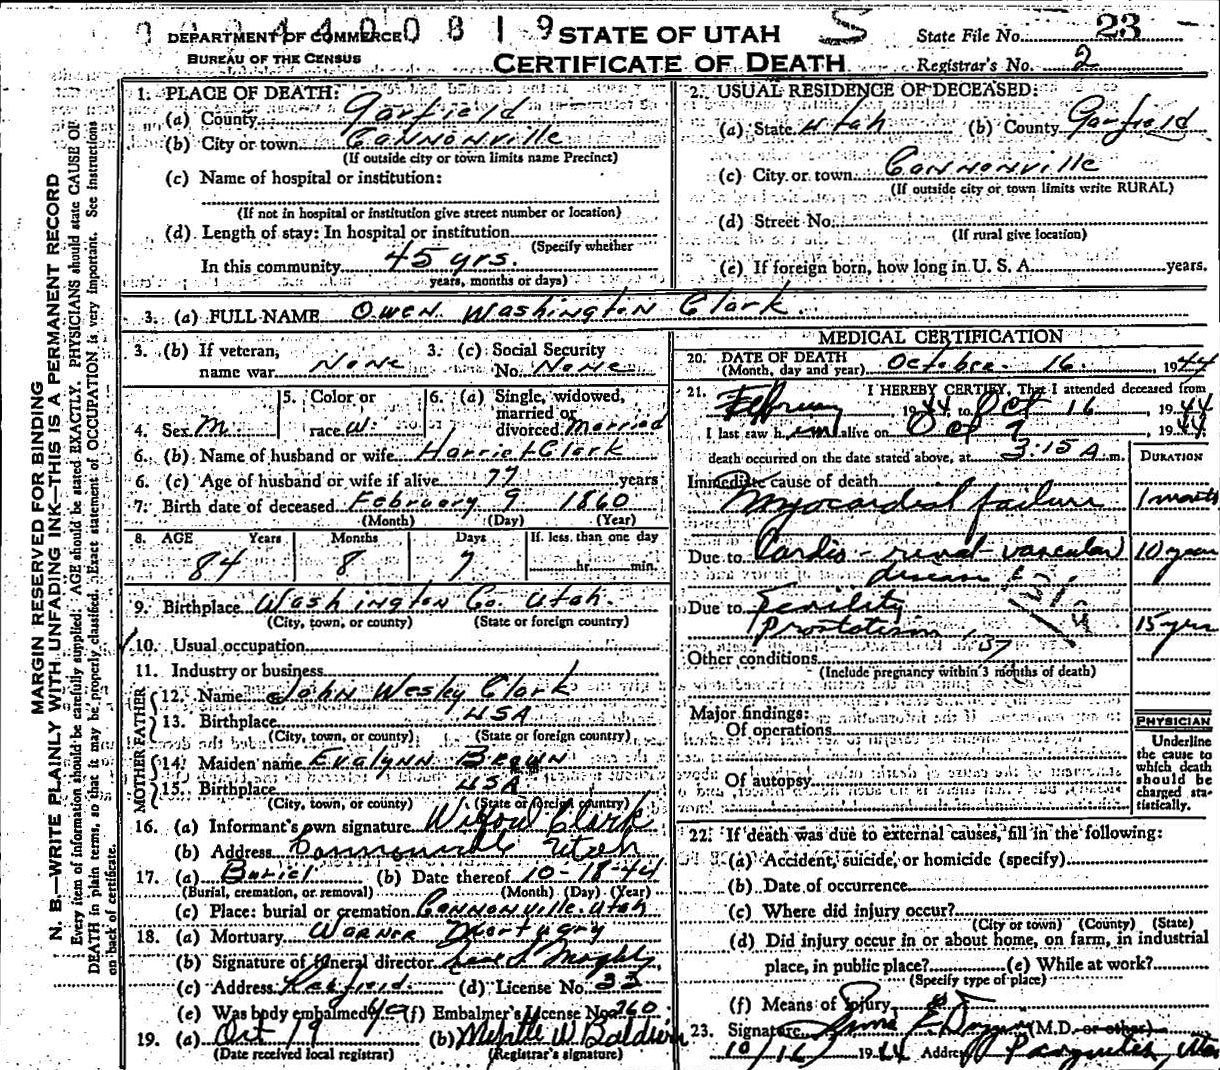 DEPARTMENT OF COMMERCE
BUREAU OF THE CENSUS
0819
STATE OF UTAH
CERTIFICATE OF DEATH
S
State File No. 23
Registrar's No. 2
MARGIN RESERVED FOR BINDING
N. B.—WRITE PLAINLY WITH UNFADING INK—THIS IS A PERMANENT RECORD
Every item of information should be carefully supplied. AGE should be stated EXACTLY. PHYSICIANS should state CAUSE OF
DEATH in plain terms, so that it may be properly classified. Exact statement of OCCUPATION is very important. See instructions
on back of certificate.
1. PLACE OF DEATH:
(a) County Garfield
(b) City or town Cannonville
(If outside city or town limits name Precinct)
(c) Name of hospital or institution:
(If not in hospital or institution give street number or location)
(d) Length of stay: In hospital or institution
(Specify whether
In this community 45 yrs.
years, months or days)
2. USUAL RESIDENCE OF DECEASED:
(a) State Utah (b) County Garfield
(c) City or town Cannonville
(If outside city or town limits write RURAL)
(d) Street No.
(If rural give location)
(e) If foreign born, how long in U. S. A. years.
3. (a) FULL NAME Owen Washington Clark.
3. (b) If veteran, name war None
3. (c) Social Security No. None
4. Sex M.
5. Color or race W.
6. (a) Single, widowed, married or divorced Married
6. (b) Name of husband or wife Harriet Clark
6. (c) Age of husband or wife if alive 77 years
7. Birth date of deceased February 9 1860
(Month) (Day) (Year)
8. AGE Years Months Days If less than one day
84 8 7 hr. min.
9. Birthplace Washington Co. Utah.
(City, town, or county) (State or foreign country)
10. Usual occupation
11. Industry or business
FATHER
12. Name John Wesley Clark
13. Birthplace USA
(City, town, or county) (State or foreign country)
MOTHER
14. Maiden name Evalynn Brown
15. Birthplace USA
(City, town, or county) (State or foreign country)
16. (a) Informant's own signature Wilford Clark
(b) Address Cannonville Utah
17. (a) Buriel (b) Date thereof 10-18-44
(Burial, cremation, or removal) (Month) (Day) (Year)
(c) Place: burial or cremation Cannonville. Utah
18. (a) Mortuary Mortuary
(b) Signature of funeral director
(c) Address Richfield. (d) License No. 33
(e) Was body embalmed yes (f) Embalmer's License No. 260
19. (a) Oct 19 (b) Myrtle W Baldwin
(Date received local registrar) (Registrar's signature)
MEDICAL CERTIFICATION
20. DATE OF DEATH October 16. 1944
(Month, day and year)
21. I HEREBY CERTIFY, That I attended deceased from
February 1944 to Oct 16, 1944
I last saw him alive on Oct 9, 1944
death occurred on the date stated above, at 3:15 A m.
DURATION
Immediate cause of death
Myocardial failure 1 month
Due to Cardio-renal-vascular 10 years
disease
Due to Senility
Prostatism 15 yrs
137
Other conditions
(Include pregnancy within 3 months of death)
Major findings:
Of operations
Of autopsy
PHYSICIAN
Underline the cause to which death should be charged statistically.
22. If death was due to external causes, fill in the following:
(a) Accident, suicide, or homicide (specify)
(b) Date of occurrence
(c) Where did injury occur?
(City or town) (County) (State)
(d) Did injury occur in or about home, on farm, in industrial
place, in public place? (e) While at work?
(Specify type of place)
(f) Means of Injury
23. Signature (M.D. or other)
10/16/1944 Address Panguitch, Utah